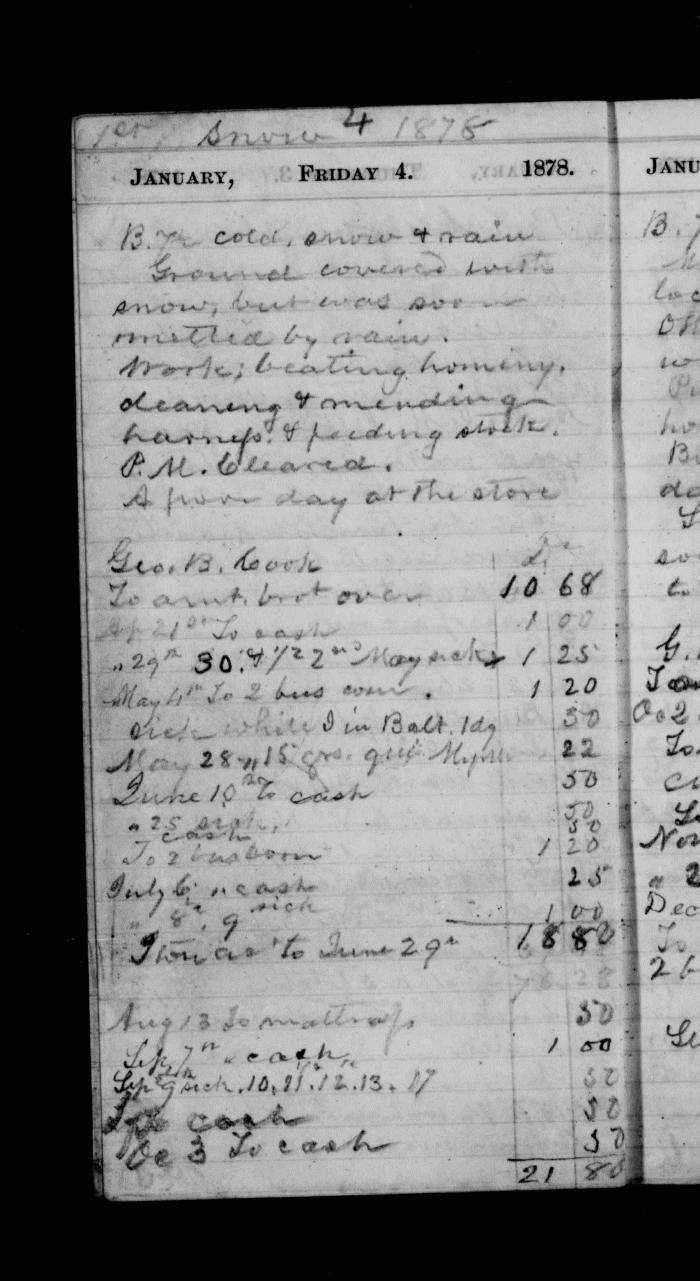 1st, Snow 4 1878
JANUARY, FRIDAY 4. 1878.
B. Fr cold, snow & rain
Ground covered with
snow, but was soon
melted by rain.
Work; beating hominy,
cleaning & mending
harness. & feeding stock.
P.M. Cleared.
A poor day at the store
Geo. B. Cook Dr
To amt. brot over 10 68
Ap 21st To cash 1 00
" 29th 30. & 1/2 2nd May sick 1 25
May 4th To 2 bus corn. 1 20
sick while I in Balt. 1dy 50
May 28 " 15 grs. qui 22
June 10th To cash 50
" 25 sick, 50
cash 50
To 2 bus corn 1 20
July 6 " cash 25
" 8th, 9 sick 1 00
to June 29th 18 80
78 28
Aug 13 To mattrass 50
Sep 7th " cash, 1 00
Sept 9th sick. 10. 11. 12. 13. 17 50
To cash 50
Oc 3 To cash 50
21 80
JANU
B.
loc
Oth
w
ho
B
da
so
to
G.
To
Oc 2
To
c
Nov
" 2
Dec
To
2 b